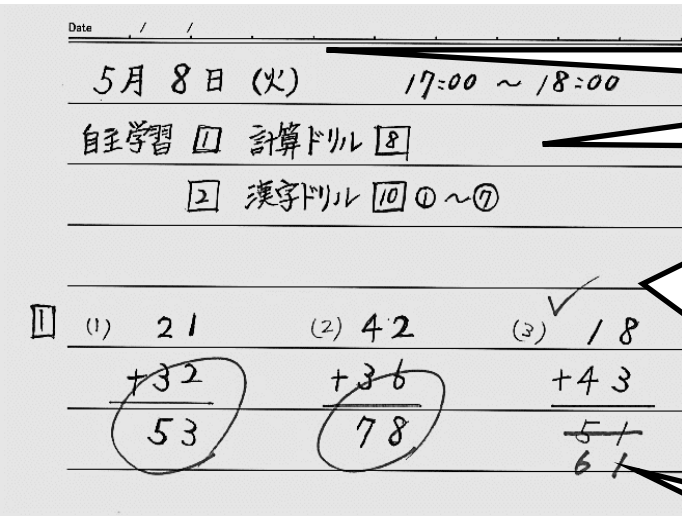 Date / /
5月 8日 (火) 17:00 ~ 18:00
自主学習 1 計算ドリル 8
2 漢字ドリル 10 ①~⑦
1 (1) 21 (2) 42 (3) 18
+32 +36 +43
53 78 51
61